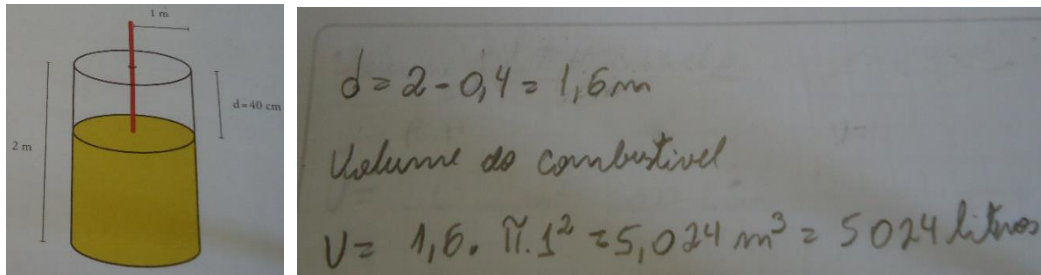 1 m
d=40 cm
2 m
d = 2 - 0,4 = 1,6m
Volume do combustivel
V = 1,6 . π.1² = 5,024 m³ = 5024 litros